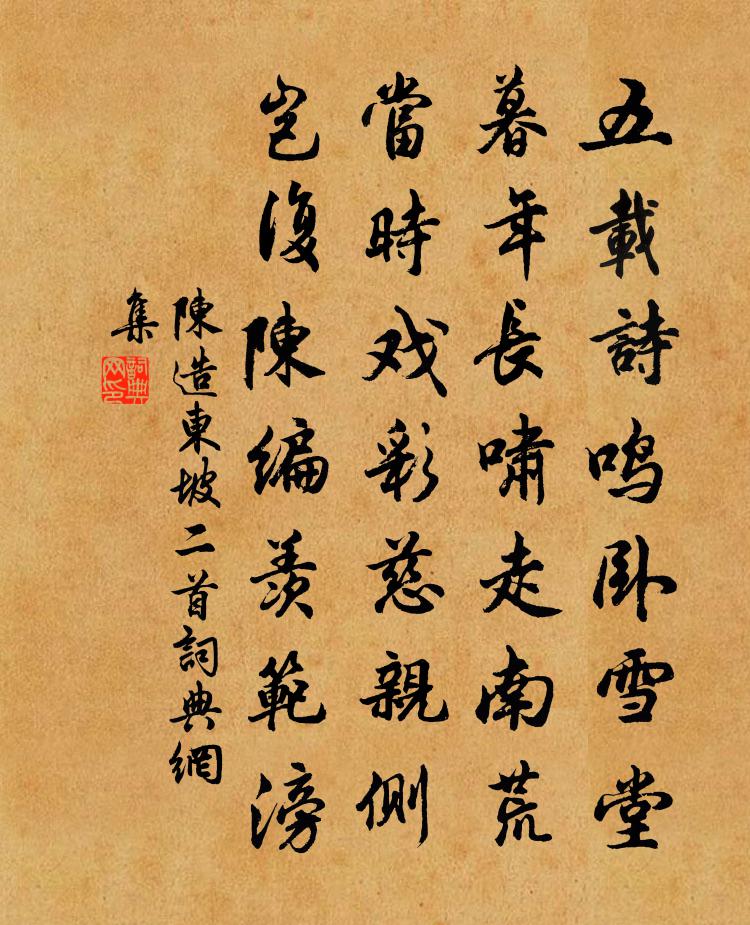 五載詩鸣卧雪堂
暮年長嘯走南荒
當時戏彩慈親側
岂復陳編羨範滂
陳造東坡二首詞典網
集
詞典
网印